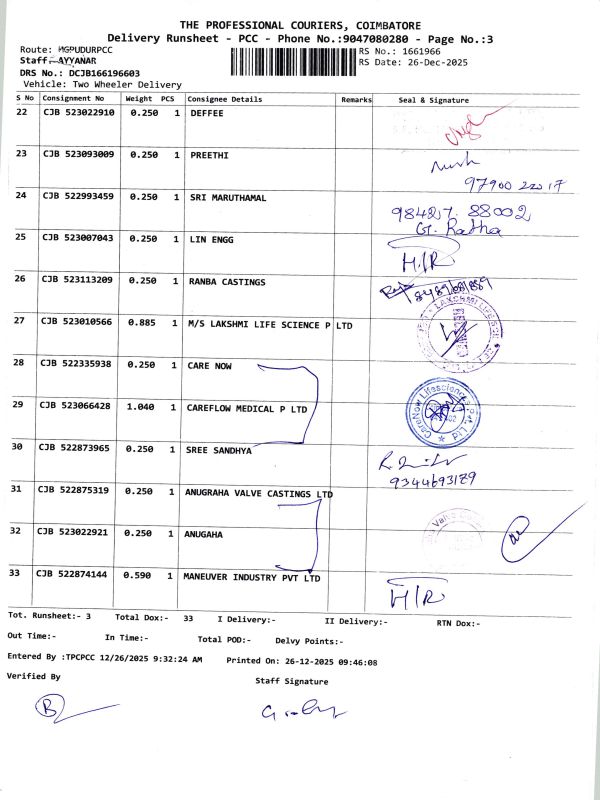 THE PROFESSIONAL COURIERS, COIMBATORE
Delivery Runsheet - PCC - Phone No.:9047080280 - Page No.:3
Route: MGPUDURPCC RS No.: 1661966
Staff: AYYANAR RS Date: 26-Dec-2025
DRS No.: DCJB166196603
Vehicle: Two Wheeler Delivery
S No Consignment No Weight PCS Consignee Details Remarks Seal & Signature
22 CJB 523022910 0.250 1 DEFFEE
23 CJB 523093009 0.250 1 PREETHI
97900 22017
24 CJB 522993459 0.250 1 SRI MARUTHAMAL 98427 88002
G. Ratha
25 CJB 523007043 0.250 1 LIN ENGG H/R
26 CJB 523113209 0.250 1 RANBA CASTINGS
27 CJB 523010566 0.885 1 M/S LAKSHMI LIFE SCIENCE P LTD
28 CJB 522335938 0.250 1 CARE NOW
29 CJB 523066428 1.040 1 CAREFLOW MEDICAL P LTD CareNow Lifesciences Pvt. Ltd
30 CJB 522873965 0.250 1 SREE SANDHYA
9344693189
31 CJB 522875319 0.250 1 ANUGRAHA VALVE CASTINGS LTD
32 CJB 523022921 0.250 1 ANUGAHA
33 CJB 522874144 0.590 1 MANEUVER INDUSTRY PVT LTD H/R
Tot. Runsheet:- 3 Total Dox:- 33 I Delivery:- II Delivery:- RTN Dox:-
Out Time:- In Time:- Total POD:- Delvy Points:-
Entered By :TPCPCC 12/26/2025 9:32:24 AM Printed On: 26-12-2025 09:46:08
Verified By Staff Signature
B